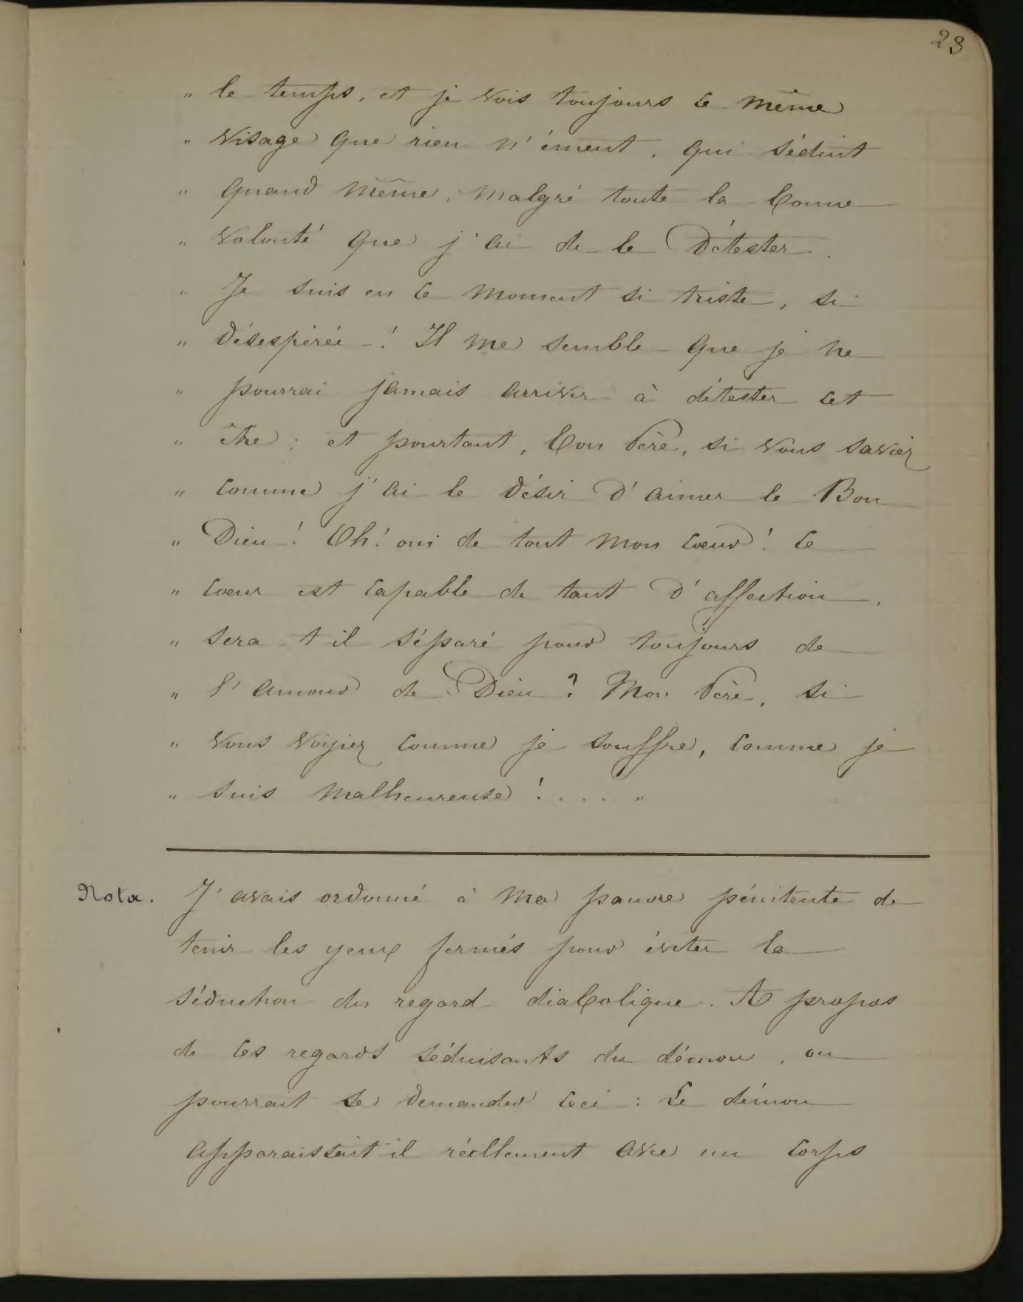 23
" le temps, et je vois toujours ce même
" visage que rien n'émeut, qui séduit
" quand même, malgré toute la bonne
" volonté que j'ai de le détester.
" Je suis en ce moment si triste, si
" désespérée ! Il me semble que je ne
" pourrai jamais arriver à détester cet
" être ; et pourtant, bon Père, si vous saviez
" comme j'ai le désir d'aimer le Bon
" Dieu ! Oh ! oui de tout mon cœur ! Ce
" cœur est capable de tant d'affection,
" sera t-il séparé pour toujours de
" l'amour de Dieu ? Mon Père, si
" vous voyiez comme je souffre, comme je
" suis malheureuse ! .... "
Nota. J'avais ordonné à ma pauvre pénitente de
tenir les yeux fermés pour éviter la
séduction du regard diabolique. A propos
de ces regards séduisants du démon, on
pourrait se demander ceci : Le démon
apparaissait il réellement avec un corps